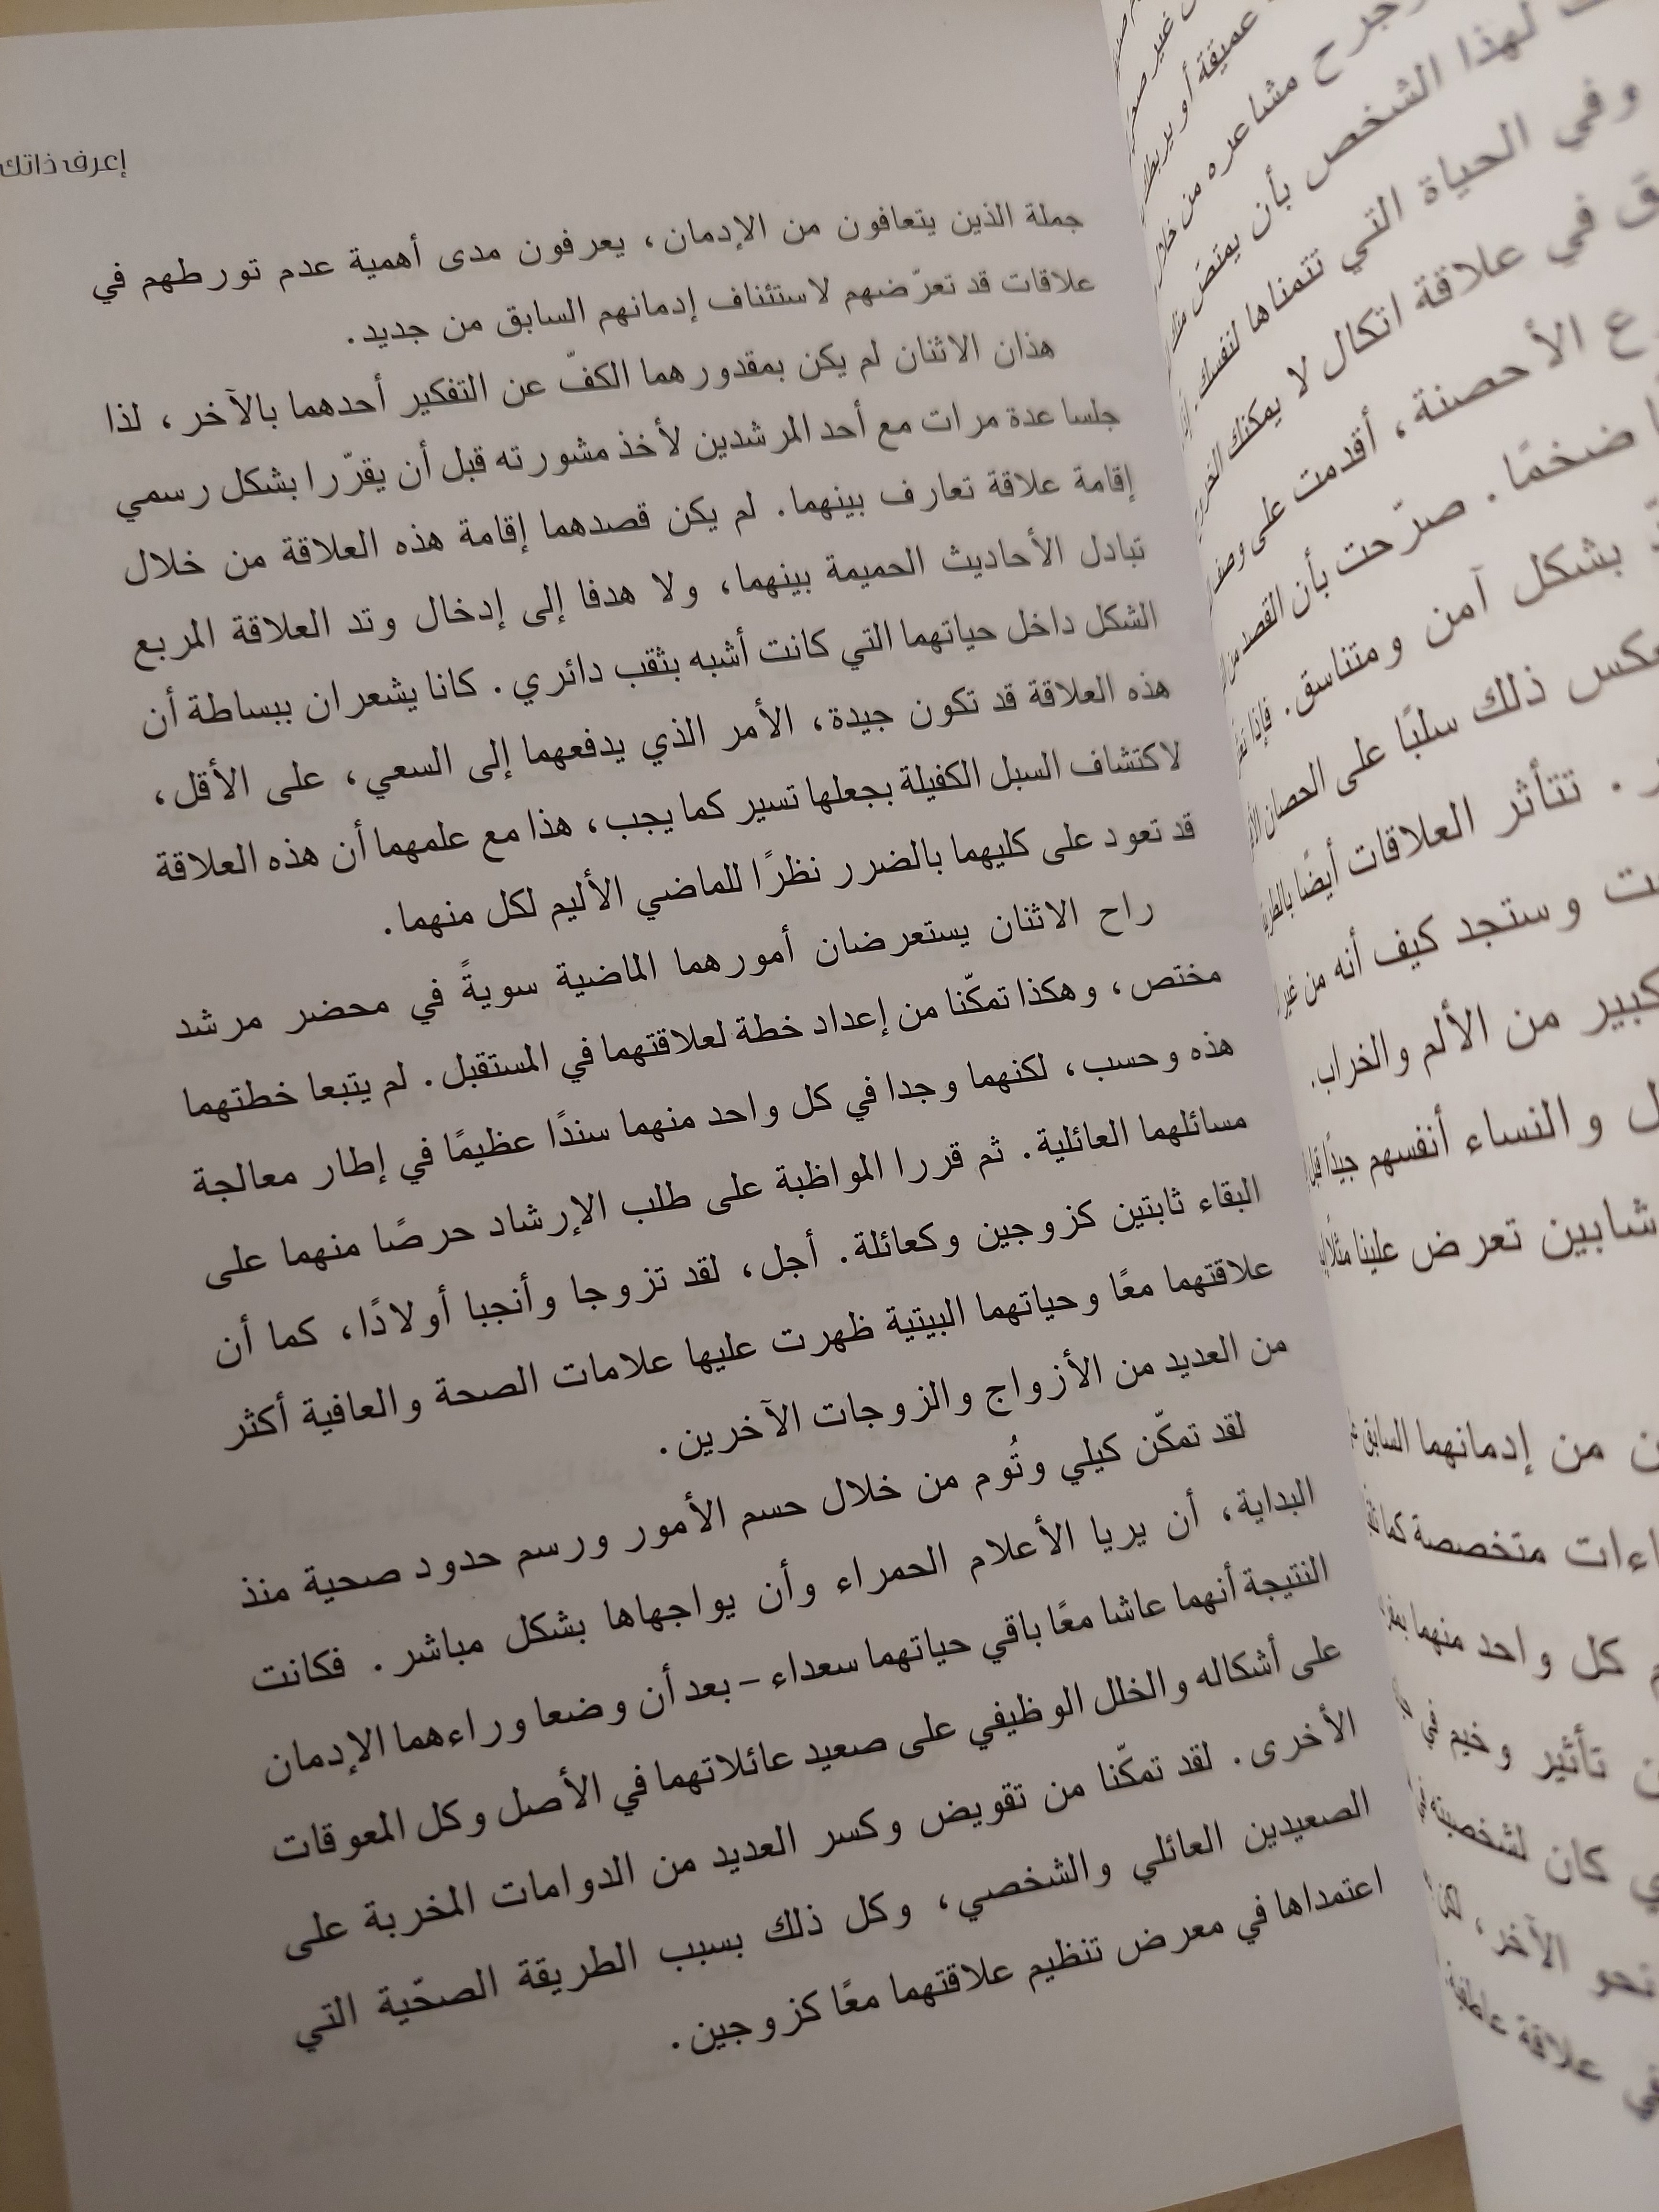 إعرف ذاتك
جملة الذين يتعافون من الإدمان، يعرفون مدى أهمية عدم تورطهم في
علاقات قد تعرّضهم لاستئناف إدمانهم السابق من جديد.
هذان الاثنان لم يكن بمقدورهما الكفّ عن التفكير أحدهما بالآخر، لذا
جلسا عدة مرات مع أحد المرشدين لأخذ مشورته قبل أن يقرّرا بشكل رسمي
إقامة علاقة تعارف بينهما. لم يكن قصدهما إقامة هذه العلاقة من خلال
تبادل الأحاديث الحميمة بينهما، ولا هدفا إلى إدخال وتد العلاقة المربع
الشكل داخل حياتهما التي كانت أشبه بثقب دائري. كانا يشعران ببساطة أن
هذه العلاقة قد تكون جيدة، الأمر الذي يدفعهما إلى السعي، على الأقل،
لاكتشاف السبل الكفيلة بجعلها تسير كما يجب، هذا مع علمهما أن هذه العلاقة
قد تعود على كليهما بالضرر نظرًا للماضي الأليم لكل منهما.
راح الاثنان يستعرضان أمورهما الماضية سويةً في محضر مرشد
مختص، وهكذا تمكّنا من إعداد خطة لعلاقتهما في المستقبل. لم يتبعا خطتهما
هذه وحسب، لكنهما وجدا في كل واحد منهما سندًا عظيمًا في إطار معالجة
مسائلهما العائلية. ثم قررا المواظبة على طلب الإرشاد حرصًا منهما على
البقاء ثابتين كزوجين وكعائلة. أجل، لقد تزوجا وأنجبا أولادًا، كما أن
علاقتهما معًا وحياتهما البيتية ظهرت عليها علامات الصحة والعافية أكثر
من العديد من الأزواج والزوجات الآخرين.
لقد تمكّن كيلي وتُوم من خلال حسم الأمور ورسم حدود صحية منذ
البداية، أن يريا الأعلام الحمراء وأن يواجهاها بشكل مباشر. فكانت
النتيجة أنهما عاشا معًا باقي حياتهما سعداء - بعد أن وضعا وراءهما الإدمان
على أشكاله والخلل الوظيفي على صعيد عائلاتهما في الأصل وكل المعوقات
الأخرى. لقد تمكّنا من تقويض وكسر العديد من الدوامات المخربة على
الصعيدين العائلي والشخصي، وكل ذلك بسبب الطريقة الصحّية التي
اعتمداها في معرض تنظيم علاقتهما معًا كزوجين.
عميقة أو يربطك
وجرح مشاعره من خلال
لهذا الشخص بأن يمتصّ منك
وفي الحياة التي تتمناها لنفسك.
في علاقة اتكال لا يمكنك
الأحصنة، أقدمت على وصف
ضخمًا. صرّحت بأن القصد من
بشكل آمن ومتناسق. فإذا
ذلك سلبًا على الحصان
تتأثر العلاقات أيضًا
وستجد كيف أنه من غير
كبير من الألم والخراب.
والنساء أنفسهم جيدًا قبل
شابين تعرض علينا مثلًا
من إدمانهما السابق
متخصصة كما
كل واحد منهما
تأثير وخيم في
كان لشخصية
نحو الآخر،
علاقة عاطفية